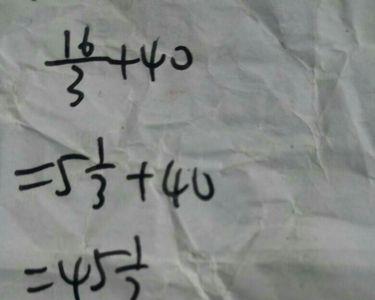 16/3+40
=5 1/3+40
=45 1/